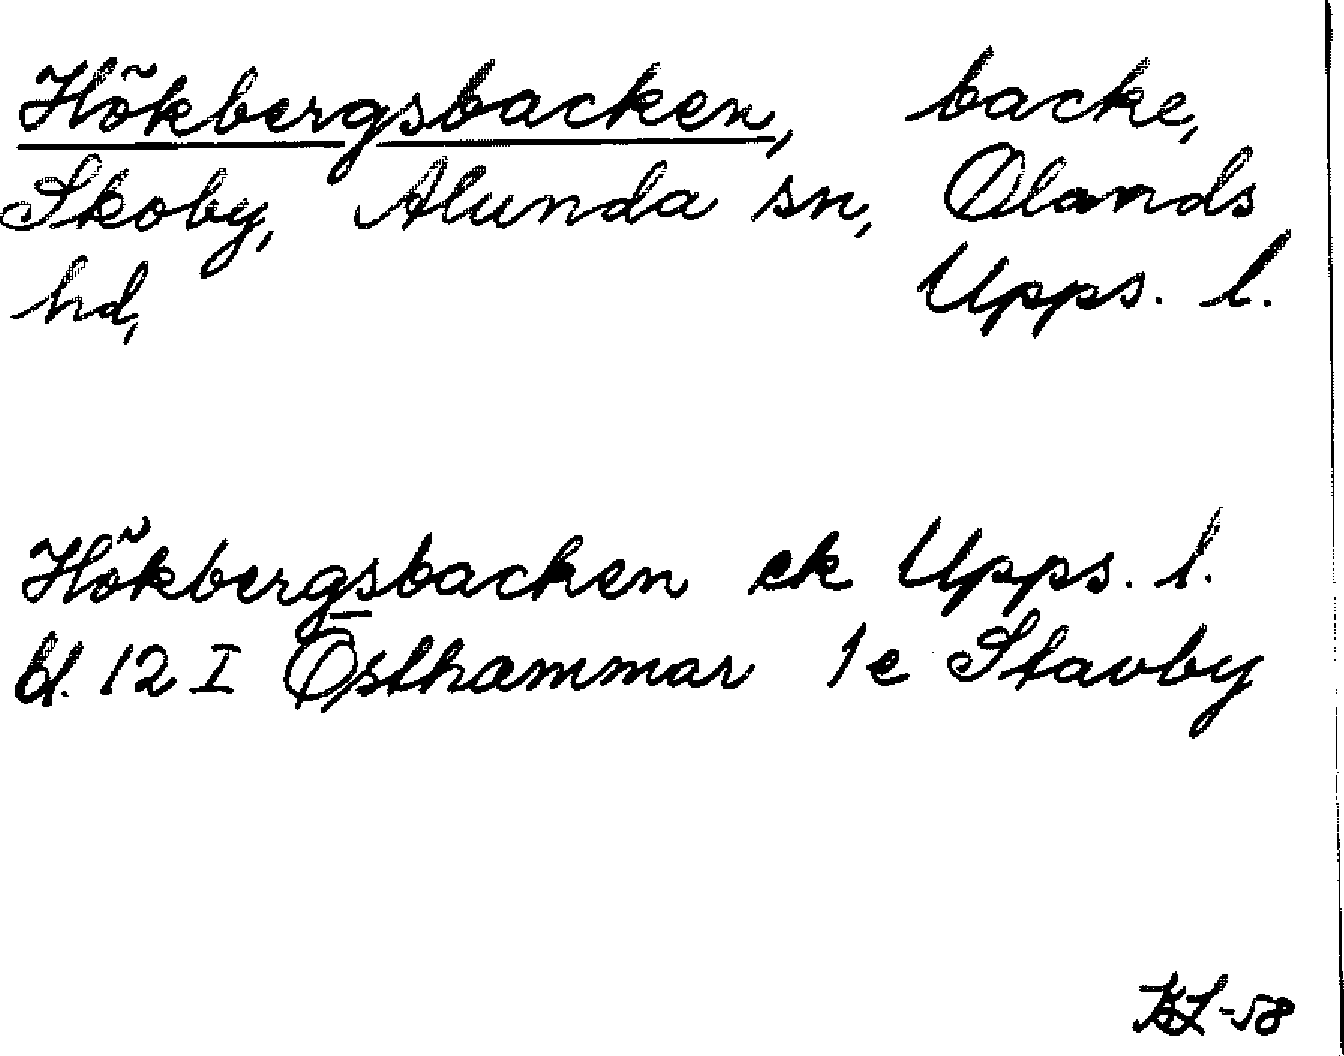 Hökbergsbacken, backe,
Skoby, Alunda sn, Olands
hd, Upps. l.
Hökbergsbacken ek Upps. l.
bl. 12 I Östhammar 1e Stavby
KL-58